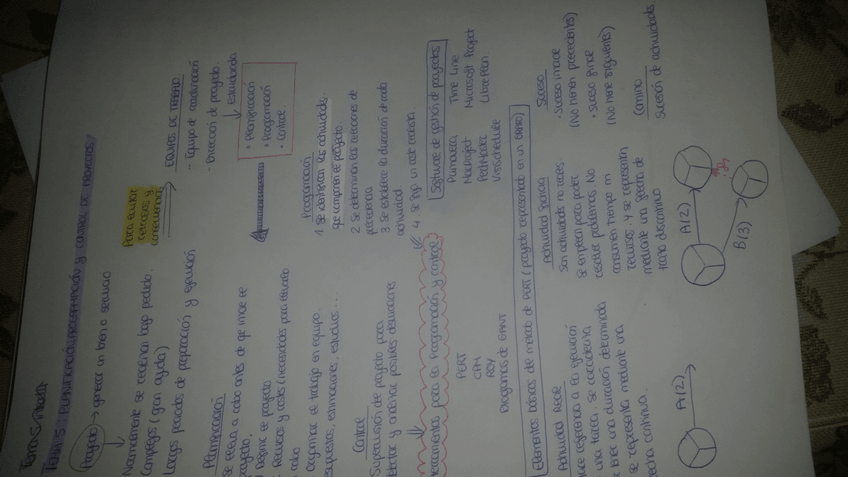 TEMA 5: PLANIFICACIÓN, PROGRAMACIÓN Y CONTROL DE PROYECTOS
Proyecto → generar un bien o servicio
Normalmente se realizan bajo pedido
Complejos (gran ayuda)
Largos periodos de preparación y ejecución
Para evitar
retrasos y
consecuencias
EQUIPOS DE TRABAJO
- Equipo de coordinación
- Dirección de proyecto
estructurada
• Planificación
• Programación
• Control
Planificación
se lleva a cabo antes de que inicie el
proyecto.
Definir el proyecto
Recursos y costes (necesidades para llevarlo
a cabo
Organizar el trabajo en equipo
supuestos, estimaciones, estudios...
Programación
1 Se identifican las actividades
que componen el proyecto
2 Se determinan las relaciones de
precedencia
3 Se establece la duración de cada
actividad
4 Se fija un coste
Control
Supervisión del proyecto para
detectar y analizar posibles desviaciones
Herramientas para la programación y control
PERT
CPM
ROY
Diagramas de GANTT
Software de gestión de proyectos
Primavera Time Line
MacProject Microsoft Project
PertMaster
ViewSchedule
Elementos básicos del método de PERT (proyecto representado en un grafo)
Actividad Real
hace referencia a la ejecución
de una tarea, se caracteriza
tener una duración determinada
se representa mediante una
flecha continua.
A(2)
Actividad ficticia
Son actividades no reales
se emplean para poder
resolver problemas. No
consumen tiempo ni
recursos. y se representan
mediante una flecha de
trazo discontinuo
A(2)
B(3)
Suceso
• Suceso inicial
(No tienen precedentes)
• Suceso final
(No tiene siguientes)
Camino
Sucesión de actividades